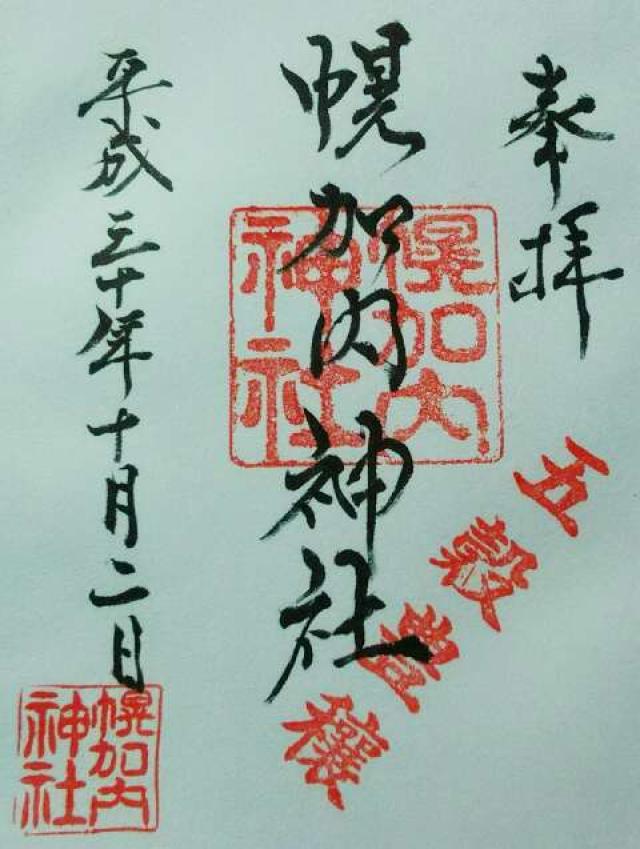 奉拝
幌加内神社
幌加内神社
五穀豊穣
平成三十年十月二日
幌加内神社